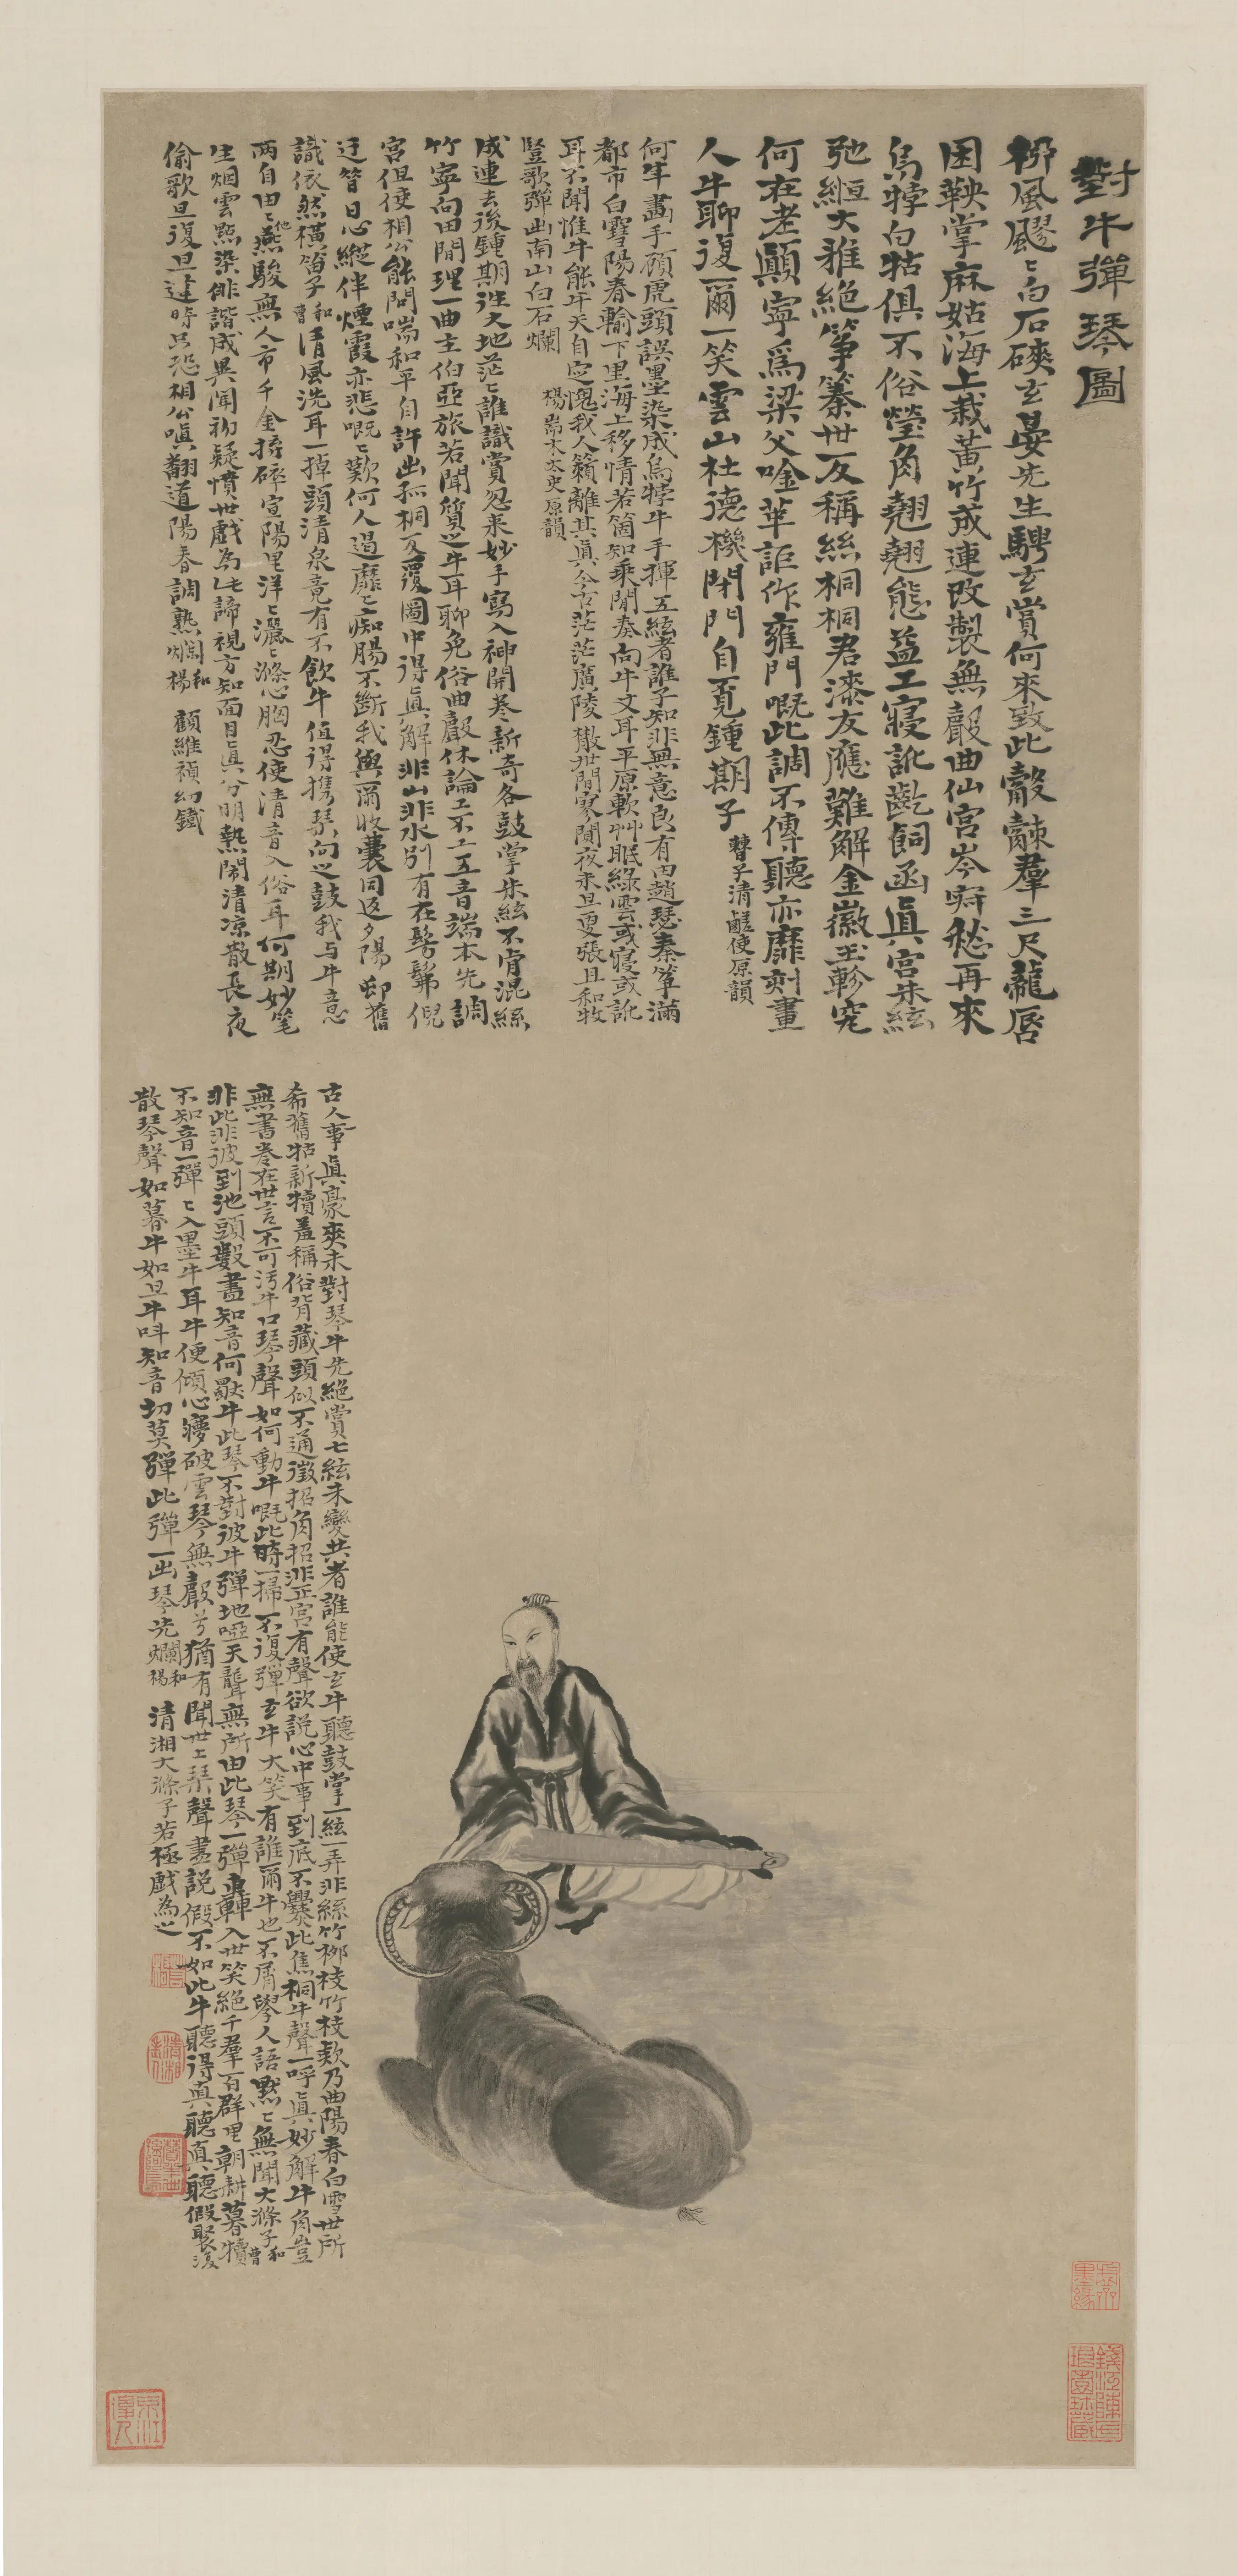 對牛彈琴圖
栁風飂〻白石磢玄晏先生騁玄賞何來致此觳觫羣三尺龍唇
困鞅掌麻姑海上栽黄竹成連改製無聲曲仙宮岑寂愁再來
烏犉白牯俱不俗瑩角翹翹態益工寢訛齝飼函真宮朱絃
弛縆大雅絶箏䈱世反稱絲桐桐君漆友應難解金徽玉軫究
何在老顛寧爲梁父唫華詎作雍門嘅此調不傳聽亦靡刻畫
人牛聊復爾一笑雲山杜德機閉門自覓鍾期子 曹子清鹺使原韻
何年畫手顧虎頭誤墨染成烏犉牛手揮五絃者誰子知非無意良有由趙瑟秦箏滿
都市白雪陽春輸下里海上移情若箇知乘閒奏向牛文耳平原軟艸眠綠雲或寢或訛
耳不聞惟牛能牛天自定愧我人籟離其真今古茫茫廣陵散世間寥闃夜未旦更張且和牧
豎歌彈出南山白石爛 楊耑木太史原韻
成連去後鍾期往大地茫〻誰識賞忽来妙手寫入神開卷新奇各鼓掌朱絃不肯混絲
竹寧向田間理一曲主伯亞旅若聞質之牛耳聊免俗曲聲休論工不工五音端本先調
宮但使相公能問喘和平自許出孤桐反覆圖中得真解非山非水別有在髣髴倪
迂昝日心縱伴煙霞亦悲嘅〻歎何人過靡〻痴腸不斷我與爾收囊同返夕陽邨舊
識依然橫笛子 和曹 清風洗耳一掉頭清泉竟有不飲牛值得攜琴向之鼓我与牛意
两自由〻他燕駿無人市千金擲碎宣陽里洋〻灑〻滌心胸忍使清音入俗耳何期妙笔
生烟雲點染俳諧成異聞初疑憤世戲為此諦視方知面目真分明熱閙清凉散長夜
偷歌旦復旦逹時只恐相公嗔翻道陽春調熟爛 和楊 顧維禎幼鐵
古人事真豪爽未對琴牛先絶賞七絃未變共者誰能使玄牛聽鼓掌一絃一弄非絲竹栁枝竹枝欸乃曲陽春白雪世所
希舊牯新犢羞稱俗背藏頭似不通徵招角招非正宮有聲欲説心中事到底不爨此焦桐牛聲一呼真妙解牛角豈
無書卷在世言不可污牛口琴聲如何動牛嘅此時一掃不復彈玄牛大笑有誰爾牛也不屑學人語默〻無聞大滌子 和曹
非此非彼到池頭數盡知音何獨牛此琴不對彼牛彈地啞天聾無所由此琴一彈轟入世笑絶千羣百群里朝耕暮犢
不知音一彈〻入墨牛耳牛便傾心夢破雲琴無聲兮猶有聞世上琴聲盡説假不如此牛聽得真聽真聽假聚復
散琴聲如暮牛如旦牛呌知音切莫彈此彈一出琴先爛 和楊 清湘大滌子若極戲為之